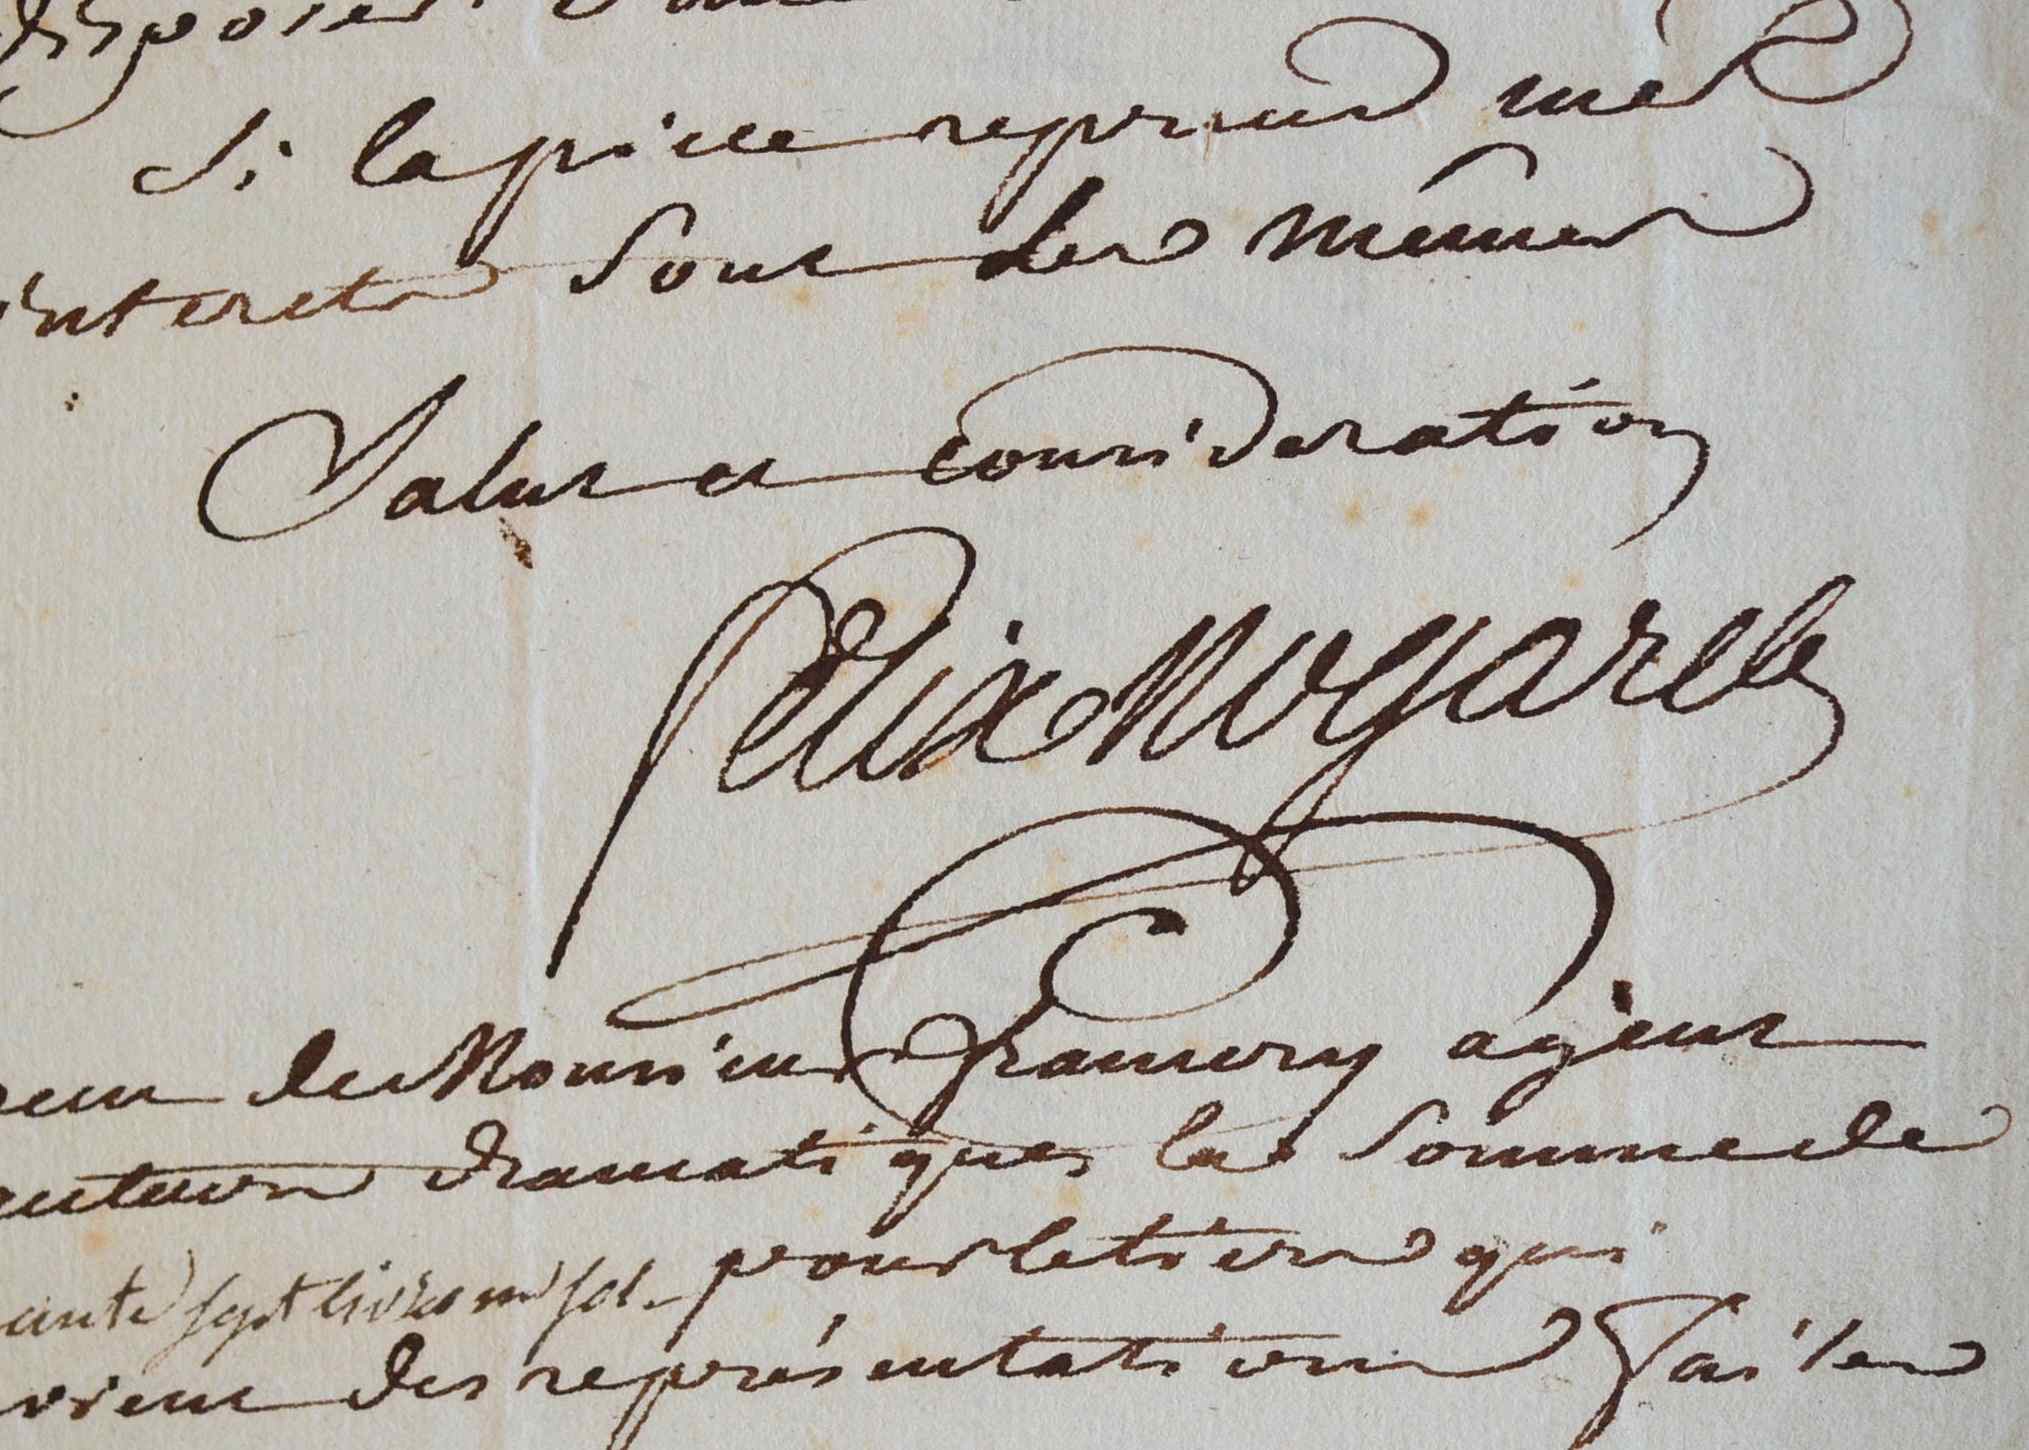 disposer
Si la piece reprend mes
interets sont les mêmes
Salut et consideration
felix Nogaret
de Monsieur framery agent
auteurs dramatiques la somme de
ante sept livres un sol. pour le tiers qui
revient des représentations faites